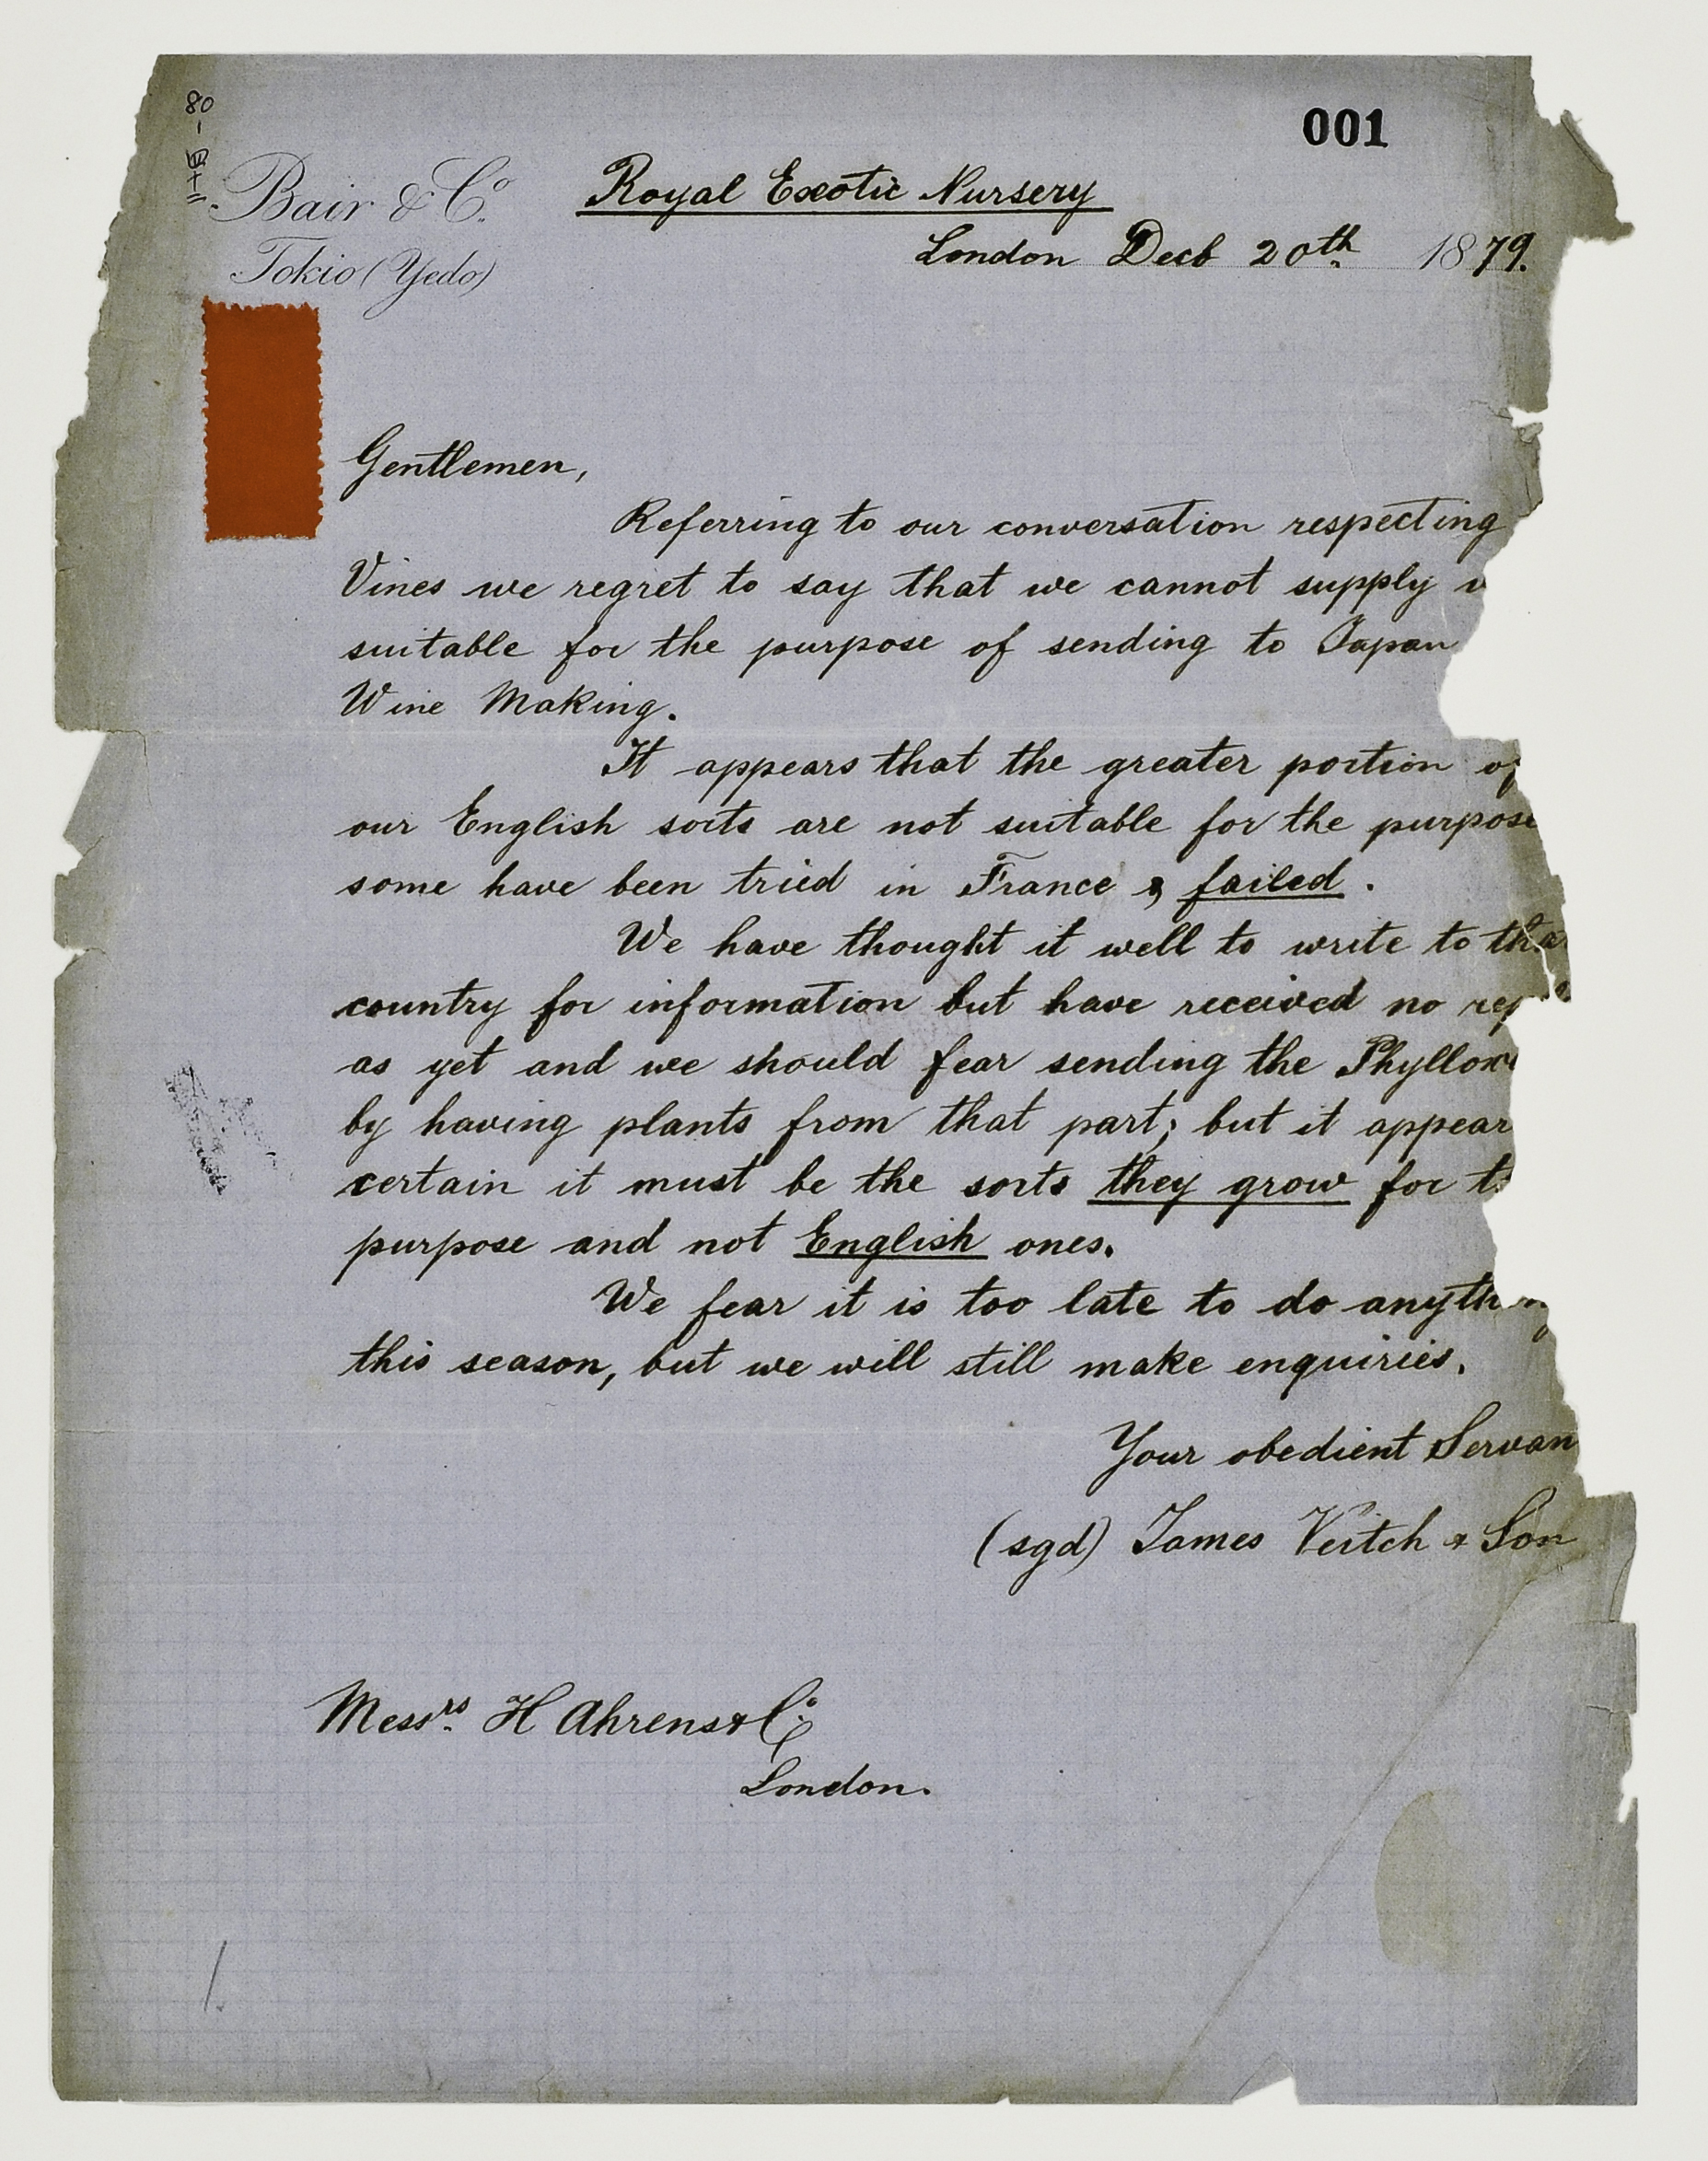 001
80
-
四十二
Bair & Co.
Tokio (Yedo)
Royal Exotic Nursery
London Decb 20th 1879.
Gentlemen,
Referring to our conversation respecting
Vines we regret to say that we cannot supply
suitable for the purpose of sending to Japan
Wine Making.
It appears that the greater portion of
our English sorts are not suitable for the purpose
some have been tried in France & failed.
We have thought it well to write to tha
country for information but have received no rep
as yet and we should fear sending the Phyllox
by having plants from that part; but it appear
certain it must be the sorts they grow for t
purpose and not English ones.
We fear it is too late to do anything
this season, but we will still make enquiries.
Your obedient Servan
(sgd) James Veitch & Son
Messrs. H Ahrens & Co.
London.